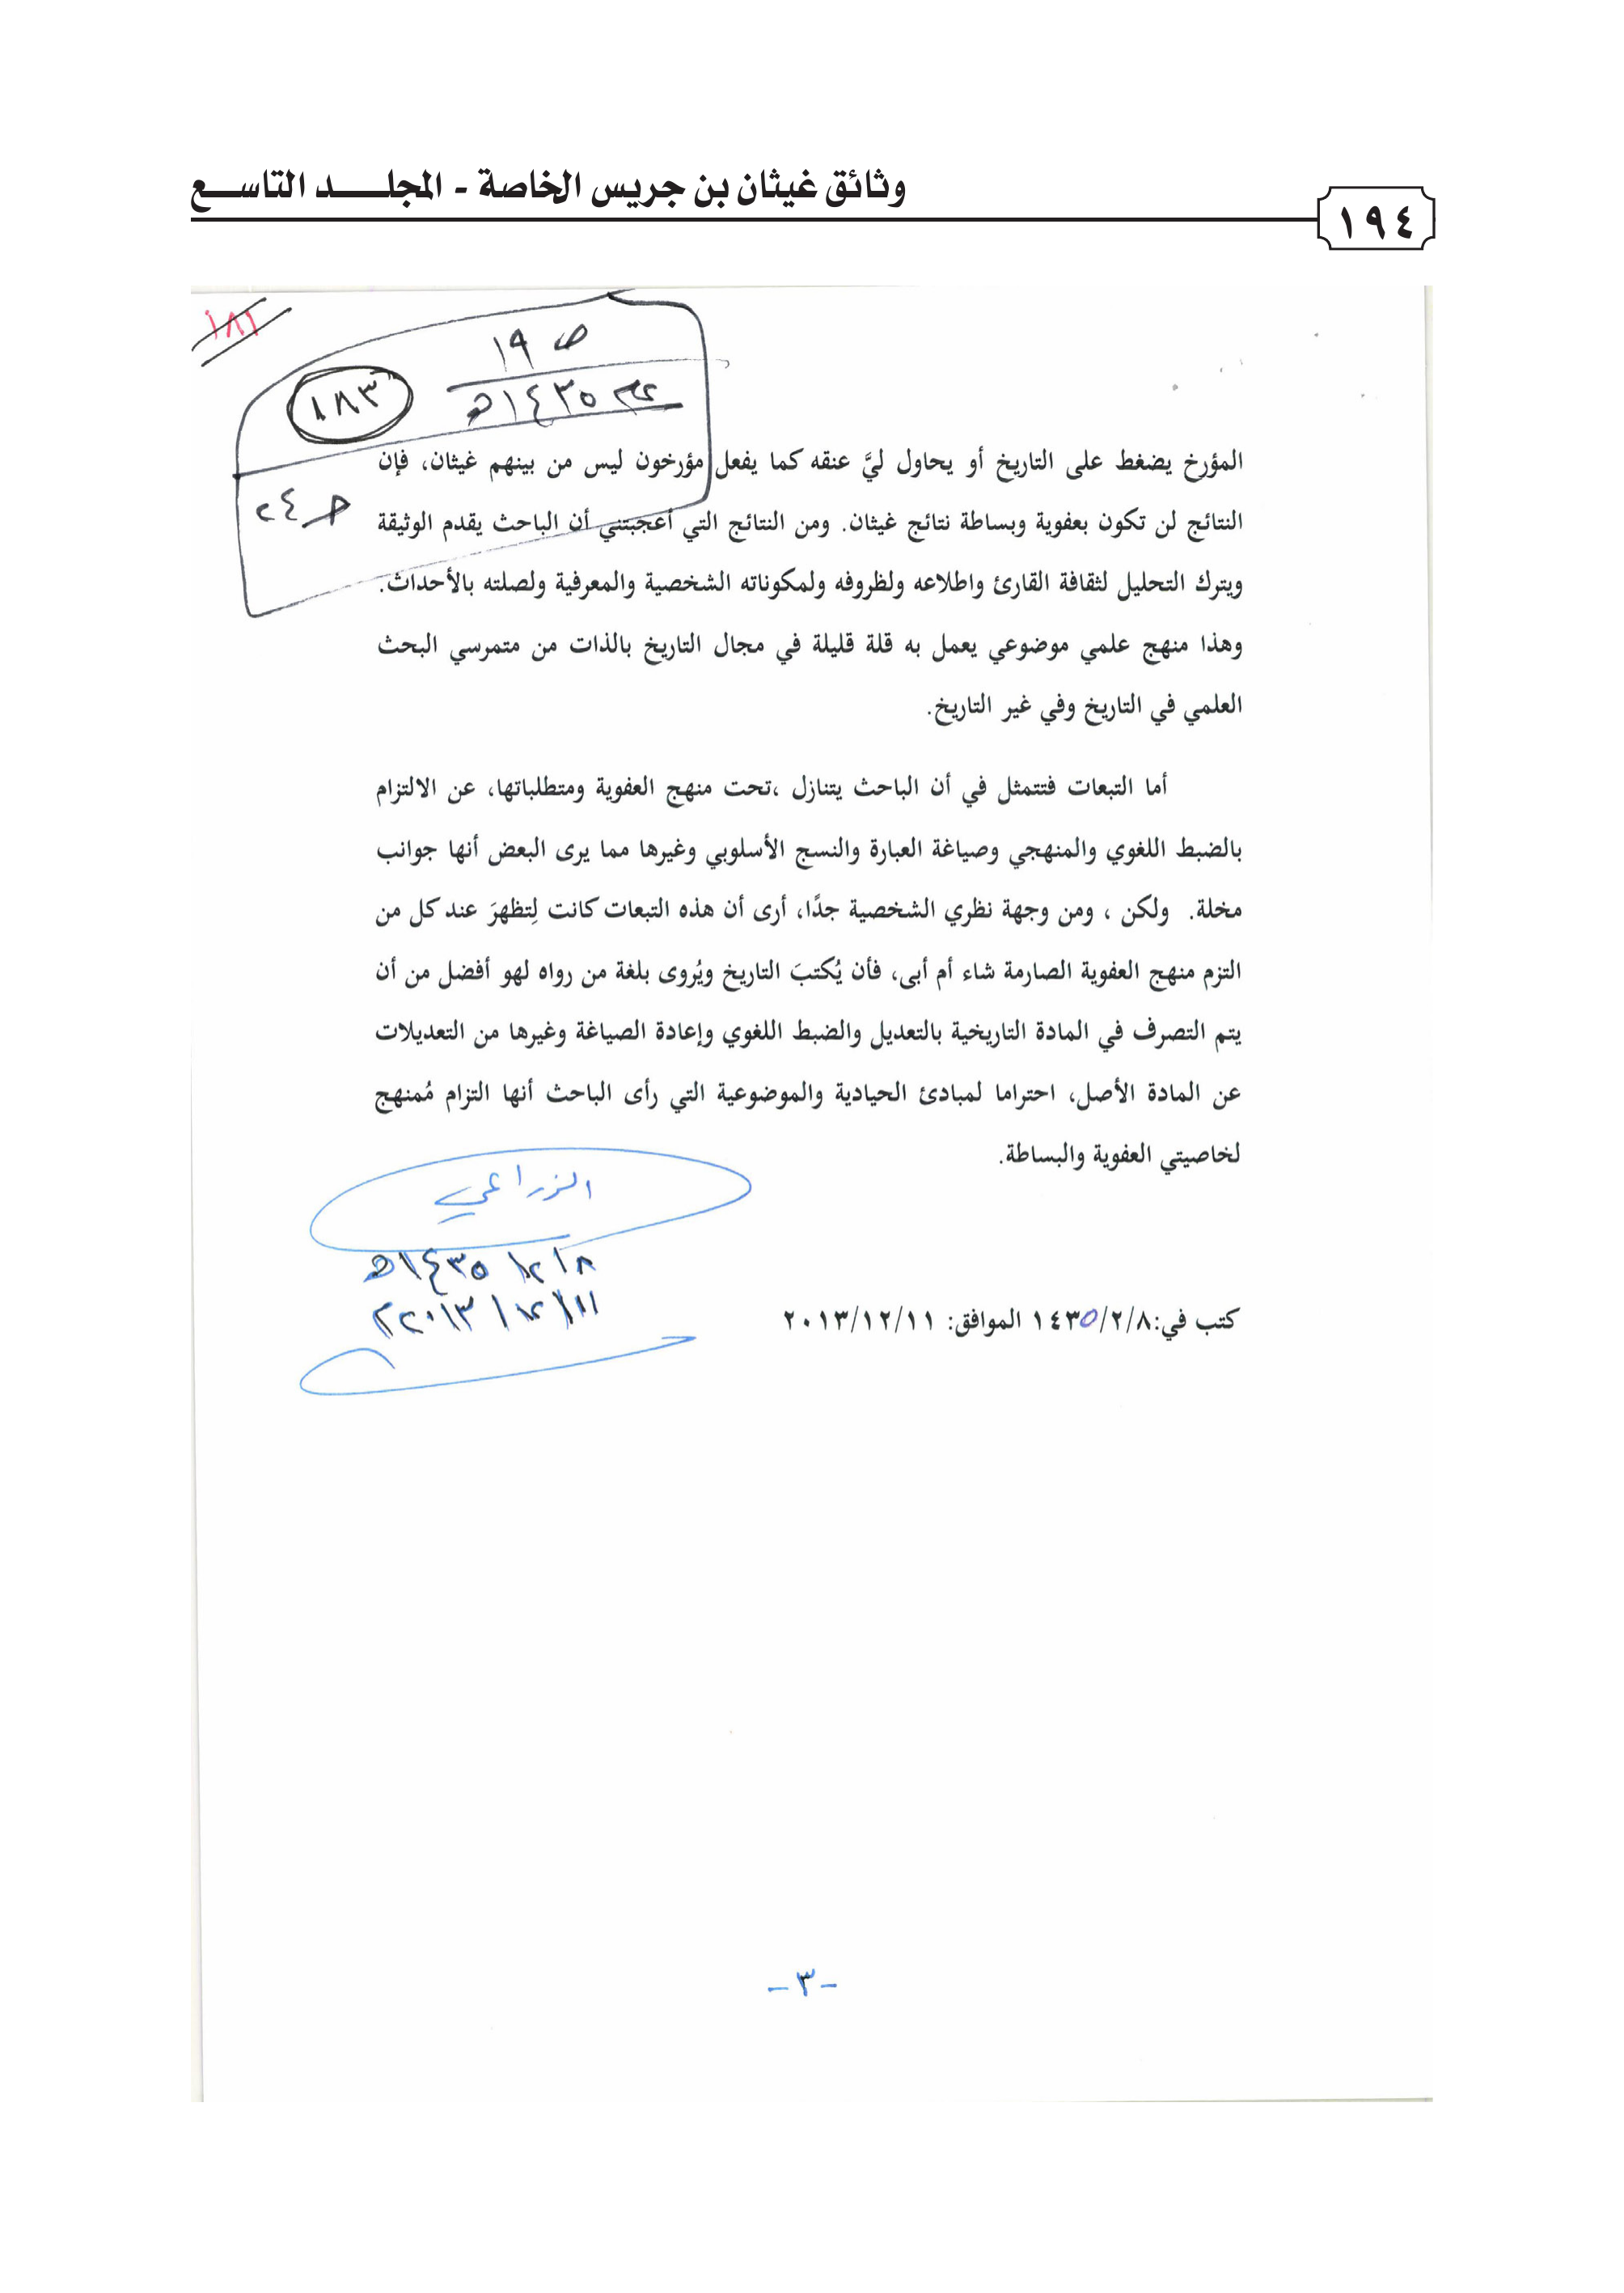 وثائق غيثان بن جريس الخاصة - المجلـــــد التاســـع
١٩٤
١٨١
ص ١٩
١٤٣٥هـ
١٨٣
حـ ٢٤
المؤرخ يضغط على التاريخ أو يحاول ليَّ عنقه كما يفعل مؤرخون ليس من بينهم غيثان، فإن
النتائج لن تكون بعفوية وبساطة نتائج غيثان. ومن النتائج التي أعجبتني أن الباحث يقدم الوثيقة
ويترك التحليل لثقافة القارئ واطلاعه ولظروفه ولمكوناته الشخصية والمعرفية ولصلته بالأحداث.
وهذا منهج علمي موضوعي يعمل به قلة قليلة في مجال التاريخ بالذات من متمرسي البحث
العلمي في التاريخ وفي غير التاريخ.
أما التبعات فتتمثل في أن الباحث يتنازل ،تحت منهج العفوية ومتطلباتها، عن الالتزام
بالضبط اللغوي والمنهجي وصياغة العبارة والنسج الأسلوبي وغيرها مما يرى البعض أنها جوانب
مخلة. ولكن ، ومن وجهة نظري الشخصية جدًا، أرى أن هذه التبعات كانت لِتظهرَ عند كل من
التزم منهج العفوية الصارمة شاء أم أبى، فأن يُكتبَ التاريخ ويُروى بلغة من رواه لهو أفضل من أن
يتم التصرف في المادة التاريخية بالتعديل والضبط اللغوي وإعادة الصياغة وغيرها من التعديلات
عن المادة الأصل، احتراما لمبادئ الحيادية والموضوعية التي رأى الباحث أنها التزام مُمنهج
لخاصيتي العفوية والبساطة.
الزراعي
٨/٢/١٤٣٥هـ
١١/١٢/٢٠١٣م
كتب في:١٤٣٥/٢/٨ الموافق: ٢٠١٣/١٢/١١
-٣-